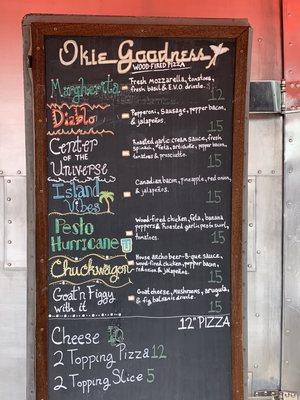 Okie Goodness
WOOD-FIRED PIZZA
Margherita
Fresh mozzarella, tomatoes,
fresh basil & E.V.O drizzle.
12
Diablo
Pepperoni, Sausage, pepper bacon
& jalapeños.
15
Center
OF THE
Universe
Roasted garlic cream sauce, fresh
spinach, feta, artichoke, pepper bacon,
tomatoes & prosciutto.
15
Island
Vibes
Canadian bacon, pineapple, red onion,
& jalapeños.
15
Pesto
Hurricane
Wood-fired chicken, feta, banana
peppers & Roasted garlic pesto swirl,
tomatoes.
15
Chuckwagon
House ancho beer-B-que sauce,
wood-fired chicken, pepper bacon,
red onion & jalapeños.
15
Goat'n Figgy
with it
Goat cheese, mushrooms, arugula
& fig balsamic drizzle.
15
12" PIZZA
Cheese 10
2 Topping Pizza 12
2 Topping Slice 5